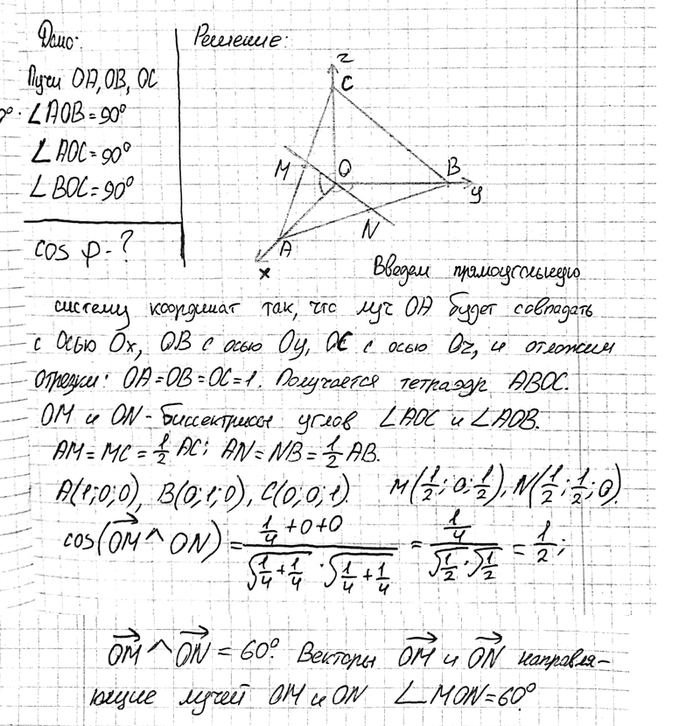 Дано:
Решение:
Лучи OA, OB, OC
∠AOB = 90°
∠AOC = 90°
∠BOC = 90°
cos φ - ?
z
C
M
O
B
y
N
A
x
Введем прямоугольную
систему координат так, что луч OA будет совпадать
с осью Ox, OB с осью Oy, OC с осью Oz, и отложим
отрезки: OA=OB=OC=1. Получается тетраэдр ABOC.
OM и ON - биссектрисы углов ∠AOC и ∠AOB.
AM = MC = 1/2 AC; AN = NB = 1/2 AB.
A(1;0;0), B(0;1;0), C(0;0;1). M(1/2; 0; 1/2), N(1/2; 1/2; 0).
cos(OM→ ^ ON) = (1/4 + 0 + 0)/(√(1/4 + 1/4) · √(1/4 + 1/4)) = (1/4)/(√(1/2) · √(1/2)) = 1/2;
OM→ ^ ON→ = 60°. Векторы OM→ и ON→ направля-
ющие лучей OM и ON ∠MON = 60°.